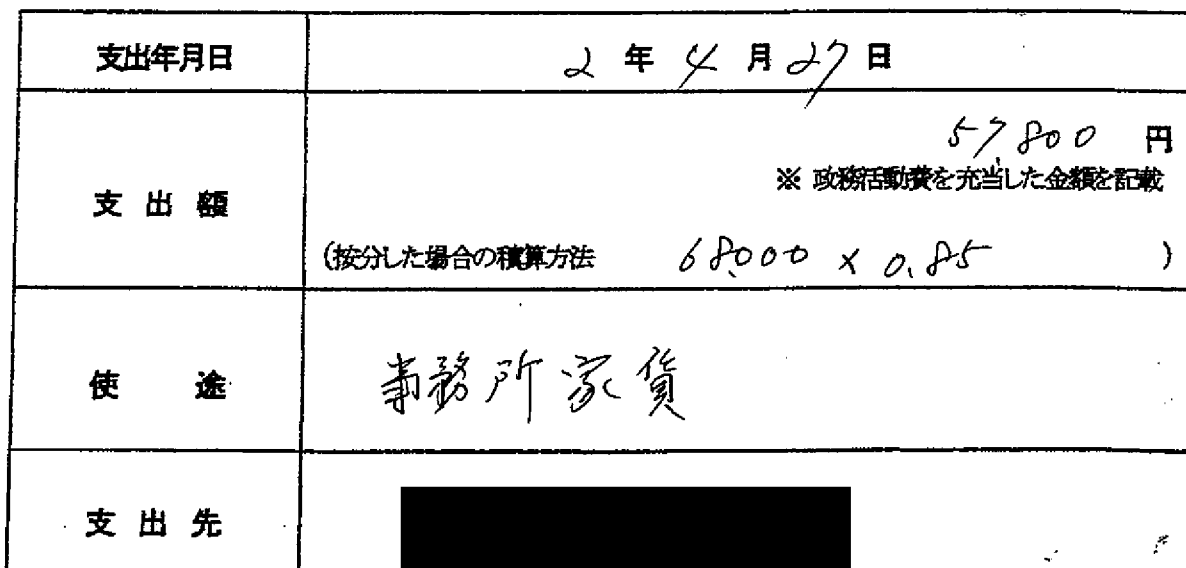 支出年月日 2 年 4 月 27 日
57,800 円
※ 政務活動費を充当した金額を記載
支出額
(按分した場合の積算方法 68,000 × 0.85 )
使途 事務所家賃
支出先